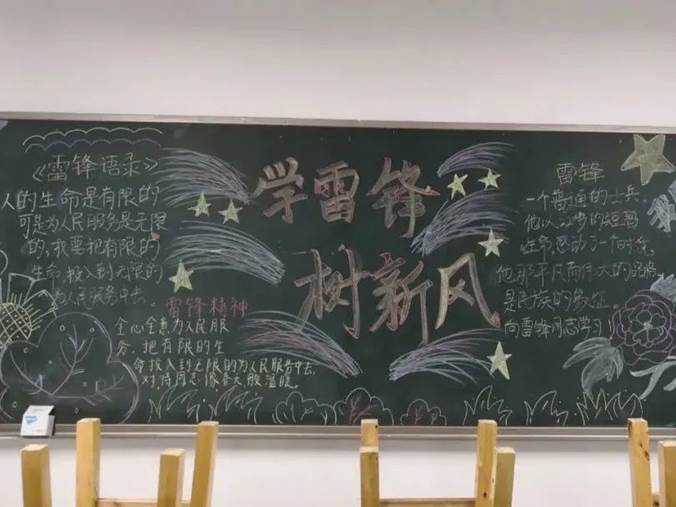 《雷锋语录》
人的生命是有限的
可是为人民服务是无限
的,我要把有限的
生命投入到无限的
为人民服务中去。
学雷锋
树新风
雷锋精神
全心全意为人民服
务。把有限的生
命投入到无限的为人民服务中去,
对待同志像春天般温暖。
雷锋
一个普通的士兵
他以22岁的短暂
生命感动了一个时代
他那平凡而伟大的品格
是民族的象征
向雷锋同志学习!